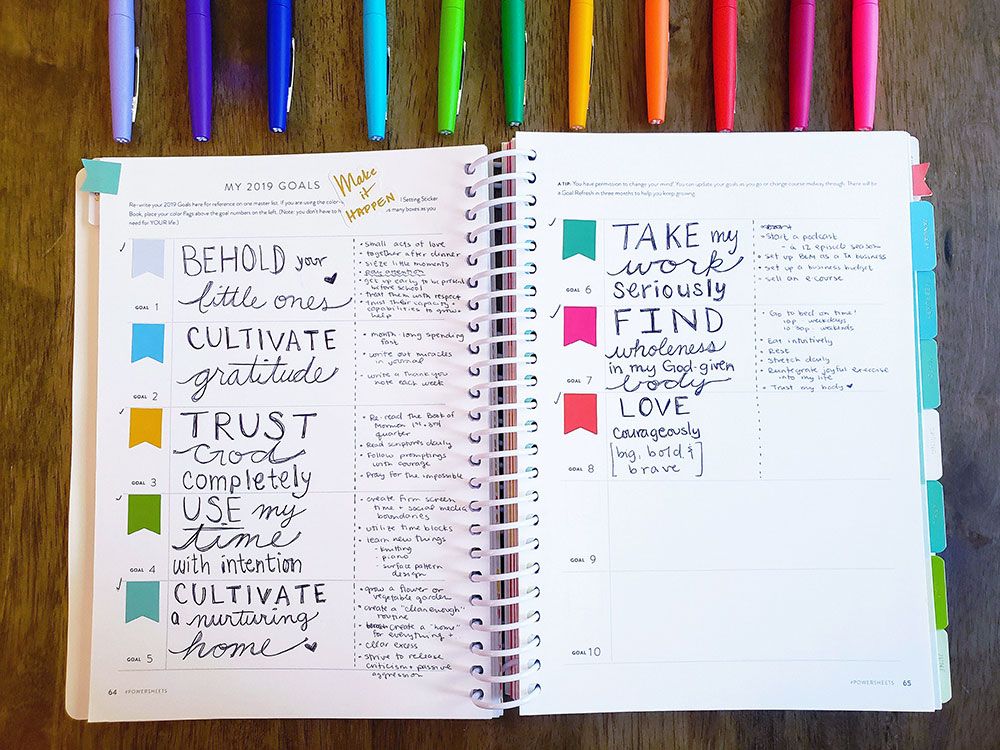 MY 2019 GOALS
Make
it
HAPPEN
Re-write your 2019 Goals here for reference on one master list. If you are using the color- Setting Sticker
Book, place your color Flags above the goal numbers on the left. (Note: you don't have to many boxes as you
need for YOUR life.)
GOAL 1
BEHOLD your
little ones
• small acts of love
• together after dinner
• sieze little moments
pay attention
• get up early to be present
before school
• treat them with respect
• trust their capacity +
capabilities to grow +
help
GOAL 2
CULTIVATE
gratitude
• month-long spending
fast
• write out miracles
in journal
• write a thank you
note each week
GOAL 3
TRUST
God
completely
• Re-read the Book of
Mormon 1st + 3rd
quarter
• Read scriptures daily
• Follow promptings
with courage
• Pray for the impossible
GOAL 4
USE my
time
with intention
• create firm screen
time + social media
boundaries
• utilize time blocks
• learn new things
- knitting
- piano
- surface pattern
design
GOAL 5
CULTIVATE
a nurturing
home
• grow a flower or
vegetable garden
• create a "clean enough"
routine
• create a "home"
for everything +
• clear excess
• strive to release
criticism + passive
aggression
64 #POWERSHEETS
A TIP: You have permission to change your mind! You can update your goals as you go or change course midway through. There will be
a Goal Refresh in three months to help you keep growing.
GOAL 6
TAKE my
work
seriously
• Start a podcast
- a 12 episode season
• set up BLM as a TX business
• set up a business budget
• sell an e-course
GOAL 7
FIND
wholeness
in my God-given
body
• Go to bed on time!
10p weekdays
10:30p - weekends
• Eat intuitively
• Rest
• Stretch daily
• Reintegrate joyful exercise
into my life
• Trust my body
GOAL 8
LOVE
courageously
[big, bold &
brave]
GOAL 9
GOAL 10
#POWERSHEETS 65